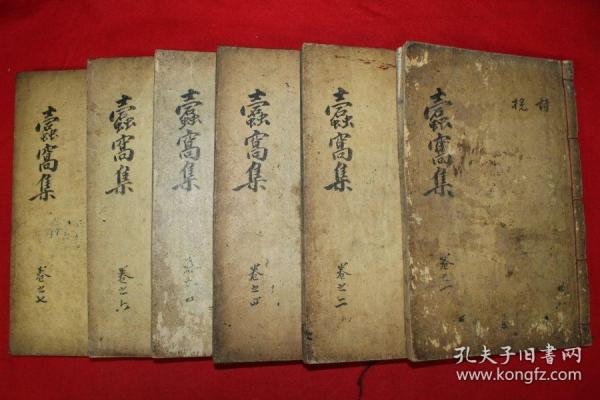 詩
挽
蠹窩集
卷之一
蠹窩集
卷之二
蠹窩集
卷之四
蠹窩集
蠹窩集
卷之六
蠹窩集
卷之七
孔夫子旧书网
www.kongfz.com